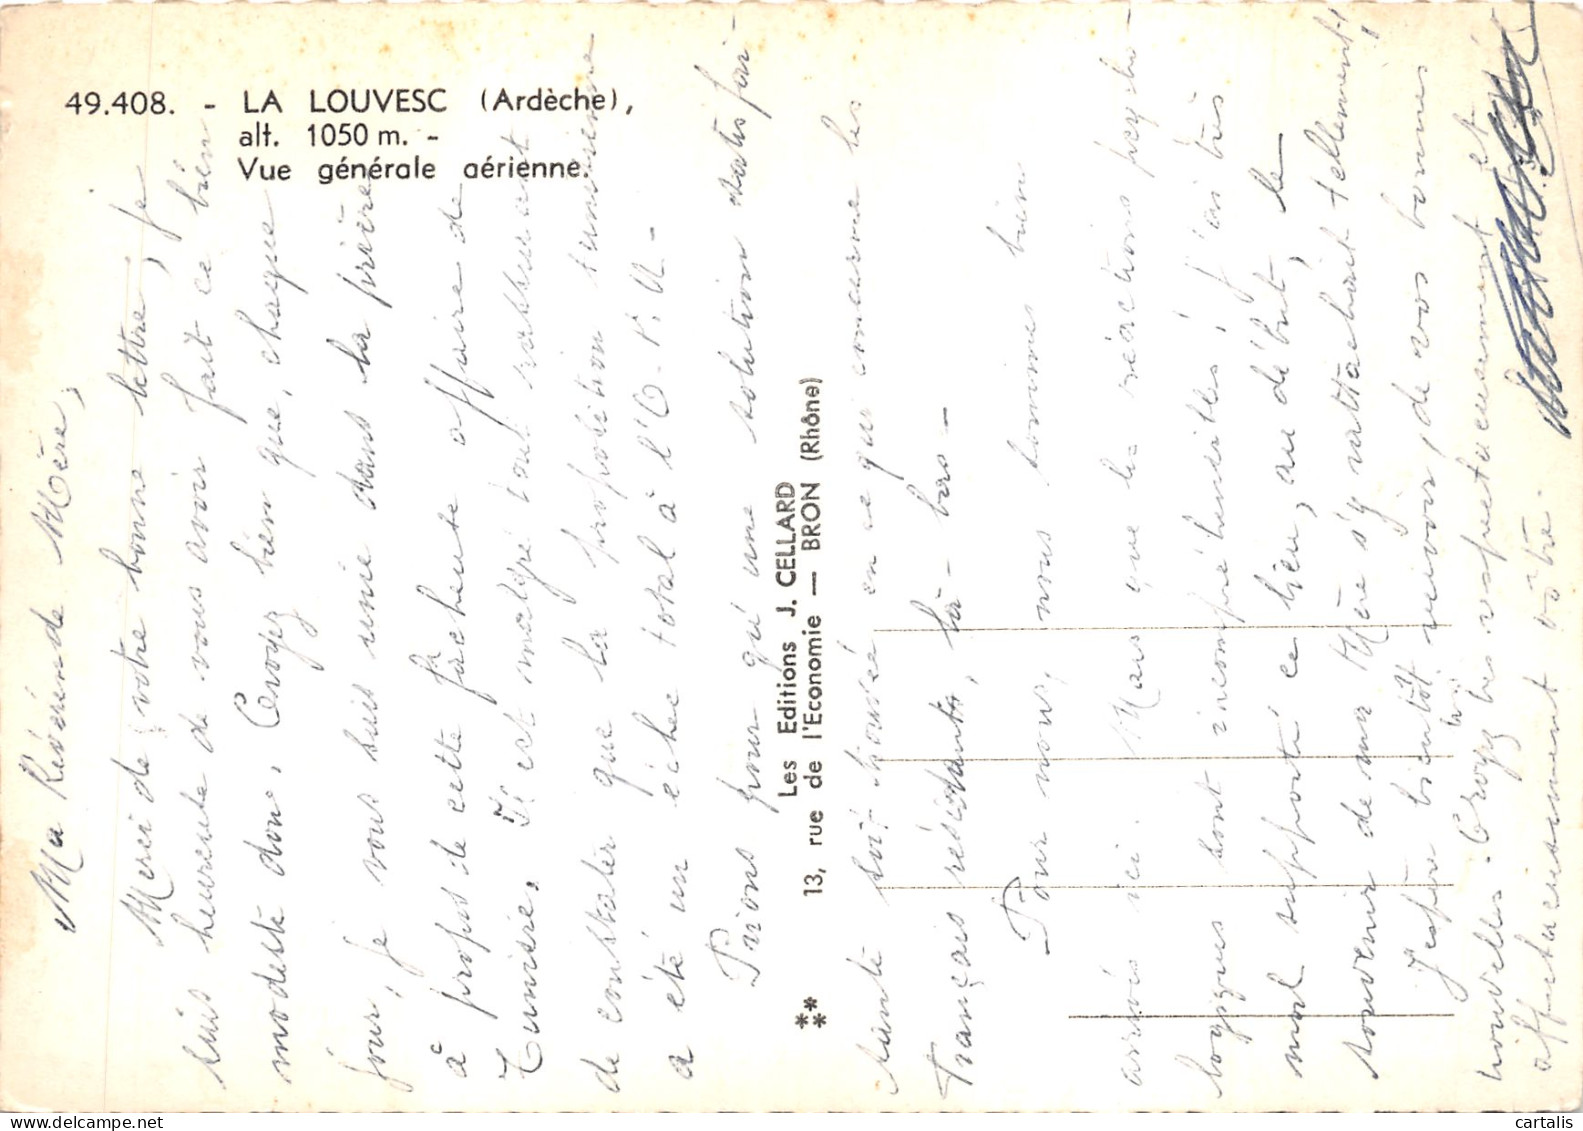 49.408. - LA LOUVESC (Ardèche),
alt. 1050 m. -
Vue générale aérienne.
Les Editions J. CELLARD
13, rue de l'Economie — BRON (Rhône)
Ma Révérende Mère,
Merci de votre bonne lettre, je
suis heureuse de vous avoir fait ce bien
modeste don. Croyez bien que, chaque
jour, je vous suis unie dans la prière
à propos de cette fâcheuse affaire de
Tunisie. Il est malgré tout rassurant
de constater que la proposition tunisienne
a été un échec total à l'O.N.U -
Prions pour qu'une solution satisfai-
sante soit trouvée en ce qui concerne les
Français résidants, là-bas -
Pour nous, nous sommes bien
arrivés ici. Mais que les réactions psycho
logiques sont incompréhensibles, j'ai très
mal supporté ce lieu, au début, le
souvenir de ma Mère s'y rattachait tellement!
J'espère bientôt revoir, de vos bonnes
nouvelles. Croyez bien très respectueusement et
affectueusement vôtre.
cartalis